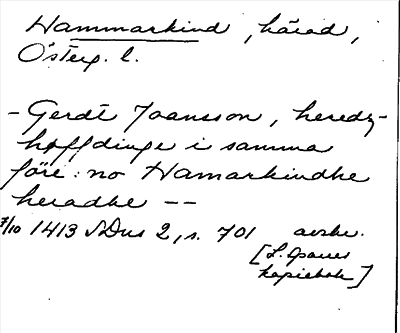 Hammarkind, härad,
Österg. l.
- Gerdt Joansson, heredz-
høffdinge i samma
före: no Hamarkindhe
heradhe --
7/10 1413 SDns 2, s. 701 avskr.
[L. Sparres
kopiebok]